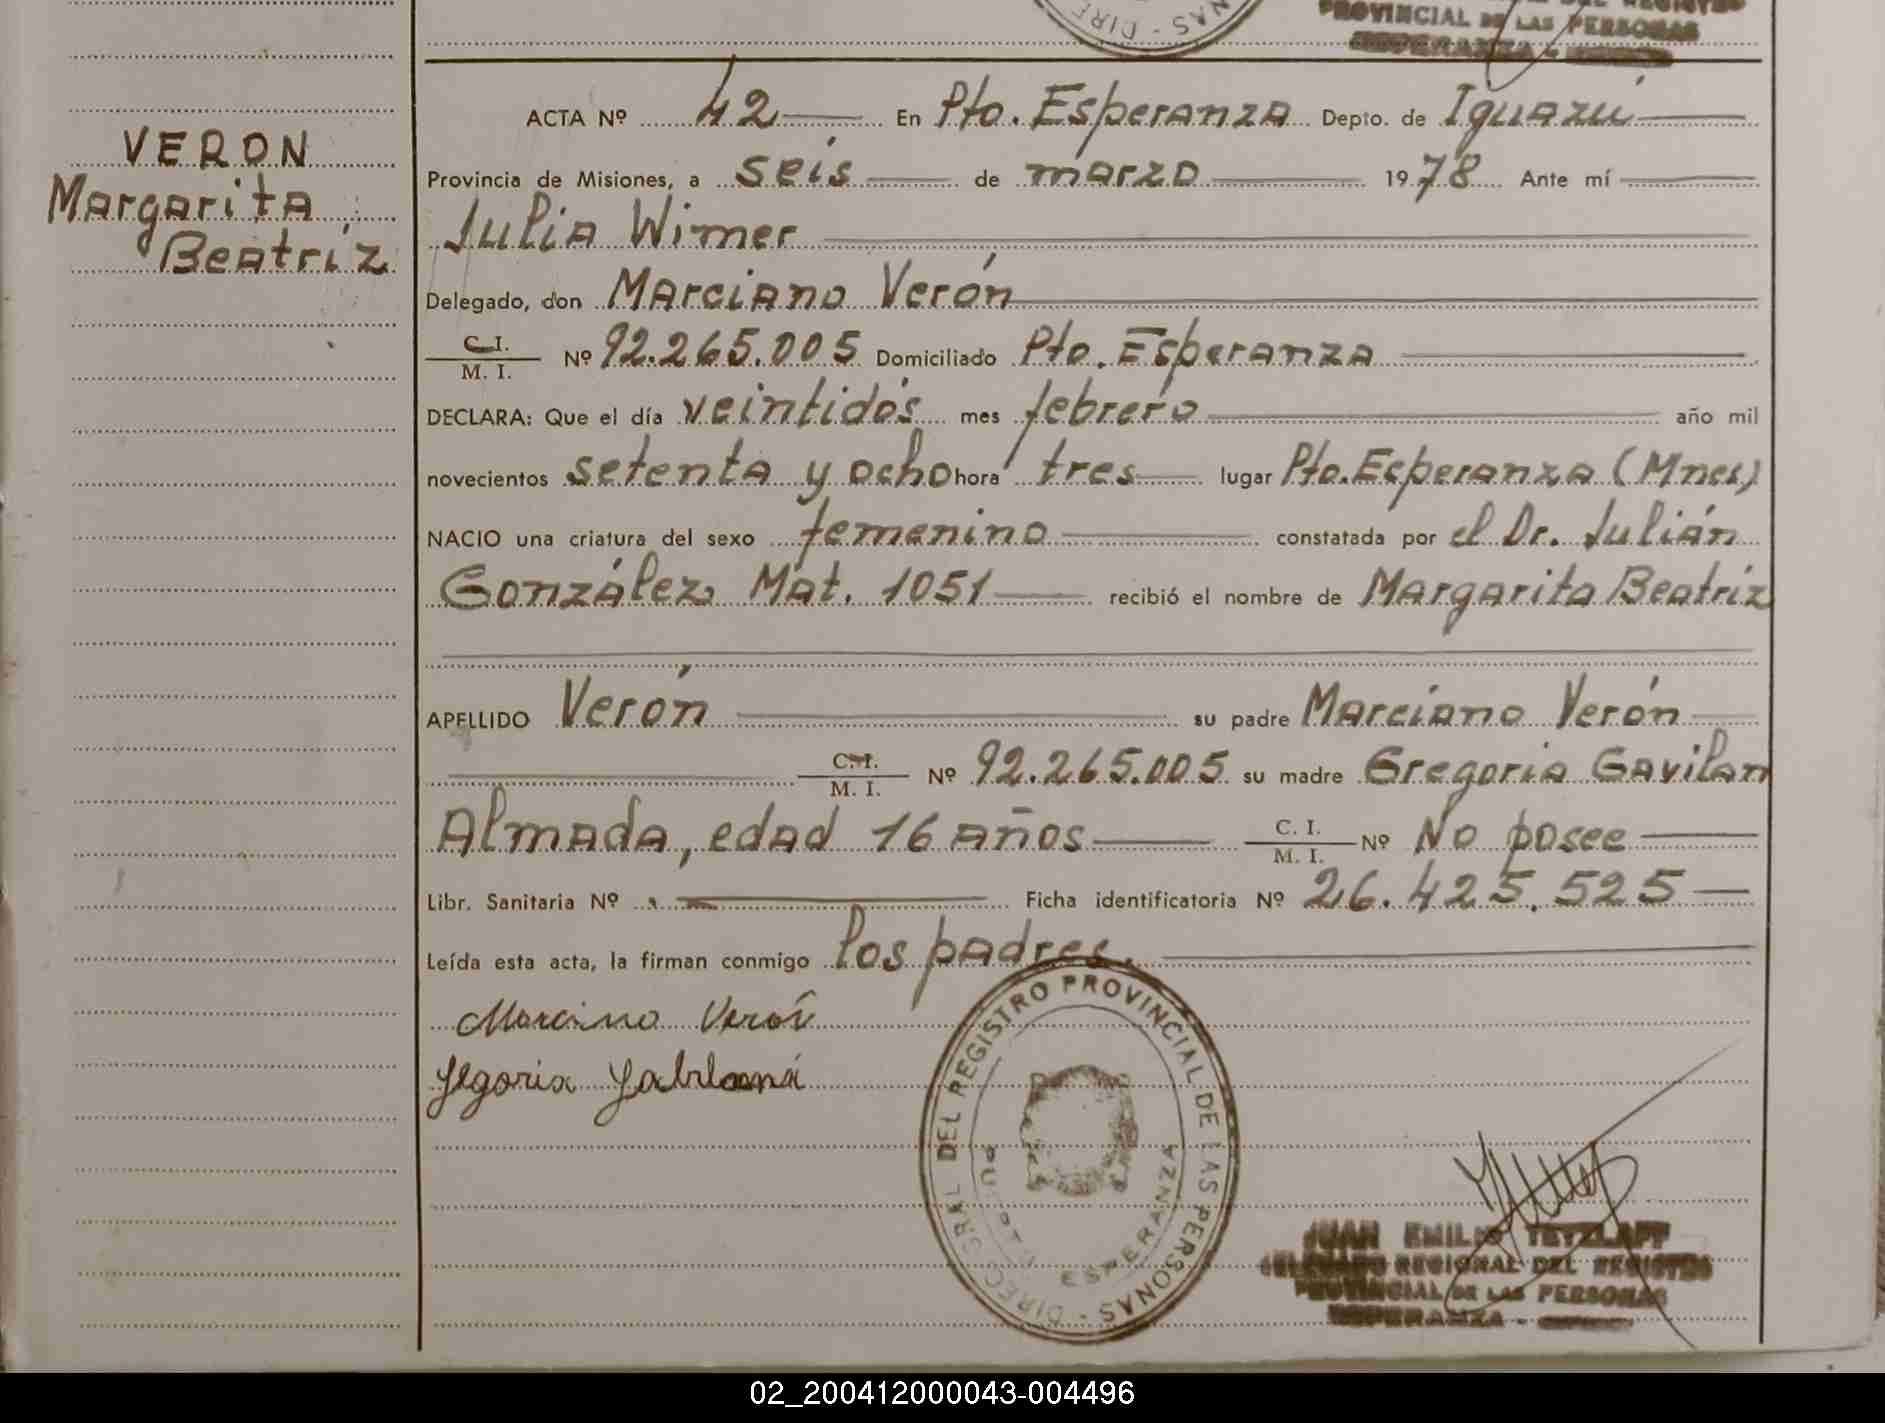 PROVINCIAL DE LAS PERSONAS
VERON
Margarita
Beatríz
ACTA Nº 42 En Pto. Esperanza Depto. de Iguazú
Provincia de Misiones, a seis de marzo 1978 Ante mí
Julia Wimer
Delegado, don Marciano Verón
C. I.
M. I. Nº 92.265.005 Domiciliado Pto. Esperanza
DECLARA: Que el día veintidós mes febrero año mil
novecientos setenta y ocho hora tres lugar Pto. Esperanza (Mnes)
NACIO una criatura del sexo femenino constatada por el Dr. Julián
González Mat. 1051 recibió el nombre de Margarita Beatríz
APELLIDO Verón su padre Marciano Verón
C. I.
M. I. Nº 92.265.005 su madre Gregoria Gavilan
Almada, edad 16 años C. I.
M. I. Nº No posee
Libr. Sanitaria Nº Ficha identificatoria Nº 26.425.525
Leída esta acta, la firman conmigo los padres.
Marciano Verón
DEL REGISTRO PROVINCIAL DE LAS PERSONAS
ESPERANZA
JUAN EMILIO TETZLAFF
DELEGADO REGIONAL DEL REGISTRO
PROVINCIAL DE LAS PERSONAS
ESPERANZA -
02_200412000043-004496